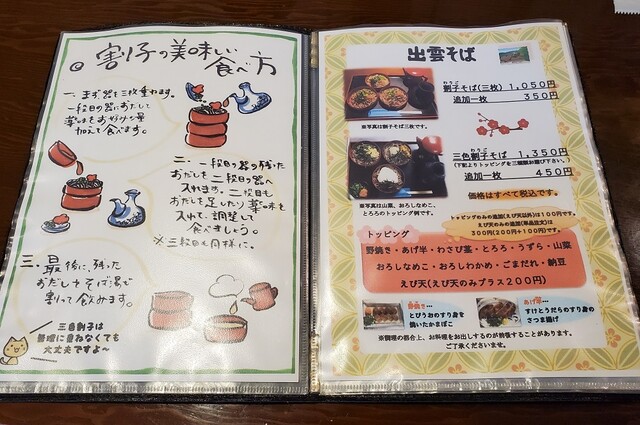 割子の美味しい
食べ方
一、まず器を三枚重ねます。
一段目の器にだして
薬味をお好きな量
加えて食べます。
二、一段目の器の残った
おだしを二段目の器へ
入れます。二段目も
おだしを足したり薬味を
入れて、調整して
食べましょう。
※三段目も同様に。
三、最後に、残った
おだしやそば湯で
割って飲みます。
三色割子は
無理に重ねなくても
大丈夫ですよ～
出雲そば
わりご
割子そば(三枚) 1,050円
追加一枚 350円
※写真は割子そば三枚です。
わりご
三色割子そば 1,350円
(下記よりトッピングを三種類お選び下さい。)
追加一枚 450円
※写真は山菜、おろしなめこ、
とろろのトッピング例です。
価格はすべて税込です。
トッピングのみの追加(えび天以外)は100円です。
えび天のみの追加(単品注文)は
300円(200円+100円)です。
トッピング
野焼き・あげ半・わさび茎・とろろ・うずら・山菜
おろしなめこ・おろしわかめ・ごまだれ・納豆
えび天(えび天のみプラス200円)
野焼き…
とびうおのすり身を
焼いたかまぼこ
あげ半…
すけとうだらのすり身の
さつま揚げ
※調理の都合上、お料理をお出しするのが前後することがあります。
ご了承くださいませ。